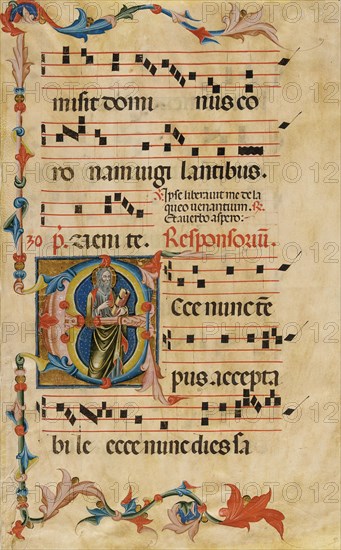 misit domi nus co
ro nam uigi lantibus.
℣. Ipse liberauit me de la
queo uenantium. ℟.
Et a uerbo aspero:
30 p. ueni te. Responsoriū.
Ecce nunc tē
pus accepta
bi le ecce nunc dies sa